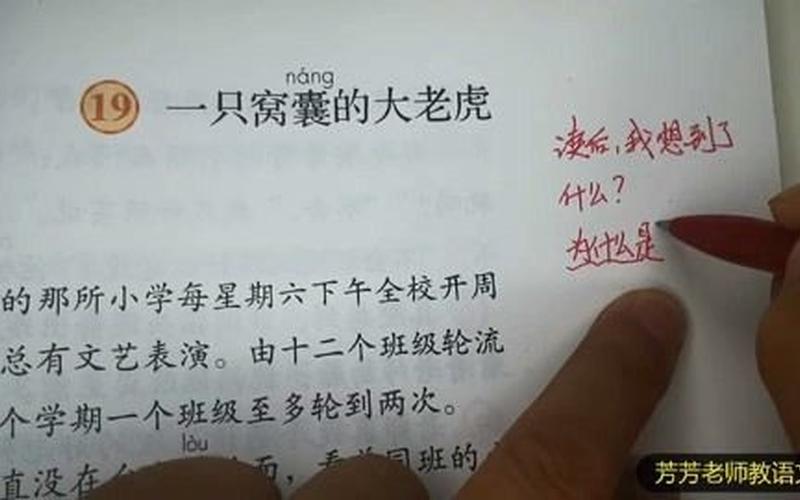 náng
19 一只窝囊的大老虎
读后,我想到了
什么?
为什么是
的那所小学每星期六下午全校开周
总有文艺表演。由十二个班级轮流
个学期一个班级至多轮到两次。
lòu
直没在 面,看着同班的
芳芳老师教语文